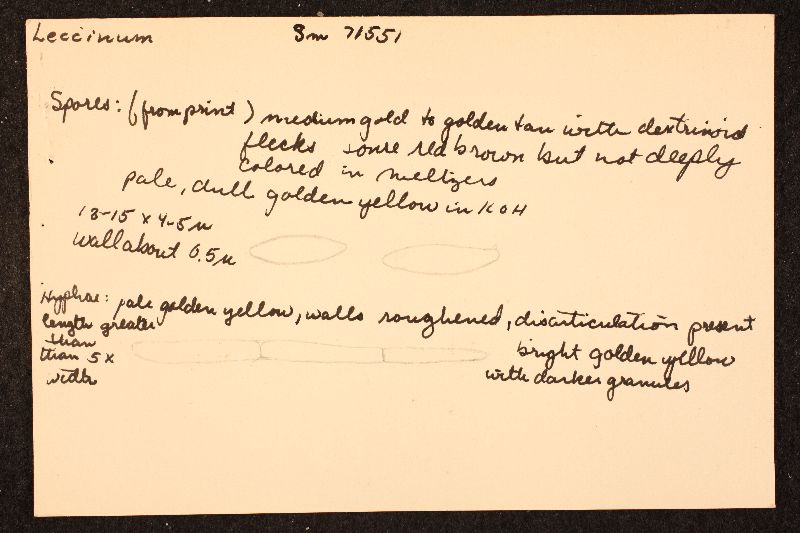 Leccinum Sm 71551
Spores: (from print) medium gold to golden tan with dextrinoid
flecks some red brown but not deeply
colored in meltzers
pale, dull golden yellow in KOH
13-15 x 4-5 u
wall about 0.5 u
Hyphae: pale golden yellow, walls roughened, disarticulation present
length greater
than
than 5 x
width
bright golden yellow
with darker granules